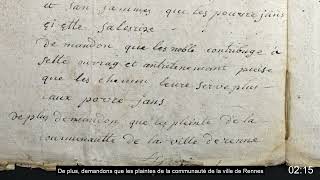 et son sammes que les pouvre jans
demandon que les noble contribuige a
selle ouvrag et antretenement puisse
que les chemin leure serve plus
caux povre jans
de plus demandon que les plainte de la
communautte de la ville de renne
De plus, demandons que les plaintes de la communauté de la ville de Rennes
02:15